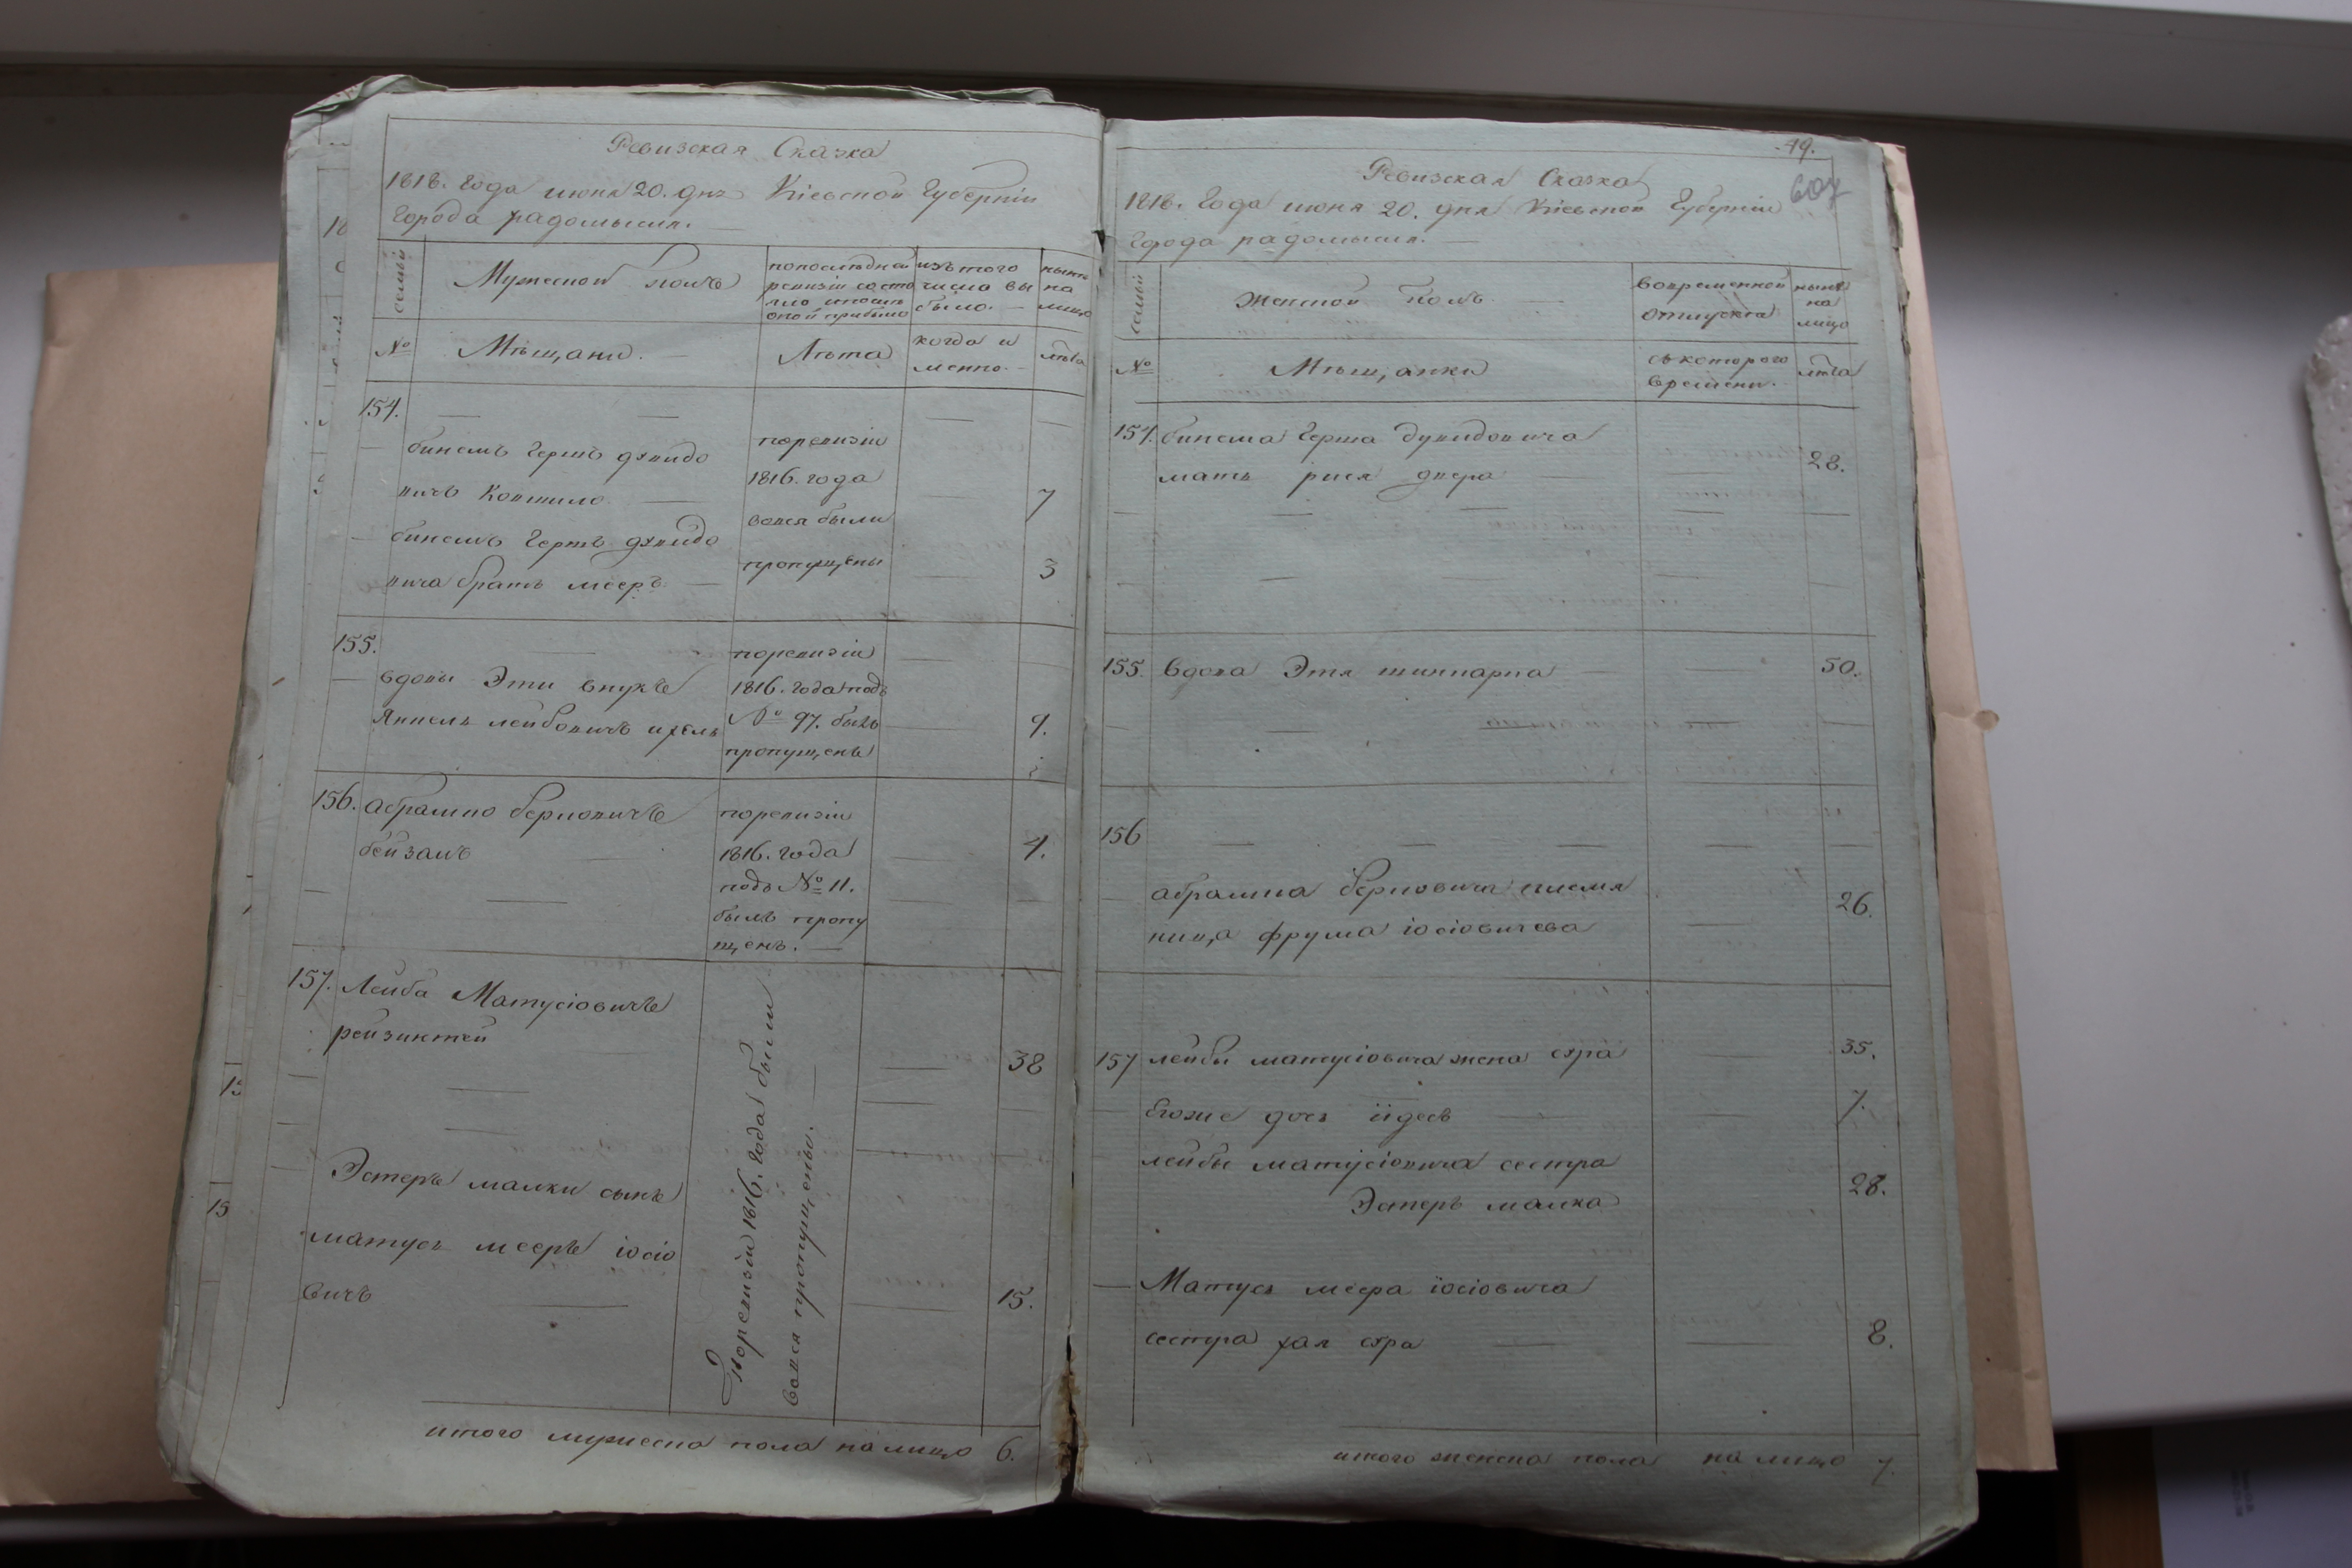 Ревизская Сказка
1818. года июня 20. дня Кіевской Губерніи
Города радомысля.
семьи
Мужеской полъ
попоследней
ревизіи состо
яло и после
оной прибыло
изътого
числа вы
было.
ныне
на
лицо
№
Мѣщане.
Лѣта
когда и
менно.
лѣта
154.
бинемъ Гершъ
вичъ
поревизіи
1816. года
вовся были
пропущены
7
бинемъ Гершъ
вича братъ мееръ
3
155.
вдовы Эти внукъ
Янкель лейбовичъ
поревизіи
1816. года подъ
№ 97. былъ
пропущенъ
9.
156.
абрамко берковичъ
бейзамъ
поревизіи
1816. года
подъ № 11.
былъ пропу
щенъ.
4.
157.
Лейба Матусіовичъ
38
Эстеръ малки сынъ
матусъ мееръ іосіо
вичъ
15.
Поревизіи 1816. года были
вовся пропущены.
итого мужеска пола налицо 6.
49.
607
Ревизская Сказка
1818. Года июня 20. дня Кіевской Губерніи
Города радомысля.
семьи
Женской полъ
вовременной
отлучкѣ
ныне
на
лицо
№
Мѣщанки
съкоторого
времени.
лѣта
154.
бинема Герша
мать рися двера
28.
155.
Вдова Этя шинкарка
50.
156
абрамка берковича племя
ница фрума іосіовичева
26.
157
лейбы матусіовича жена сура
35.
Егоже дочь
7.
лейбы матусіовича сестра
Эстеръ малка
28.
Матуса меера іосіовича
сестра хая сура
8.
итого женска пола на лицо 7.